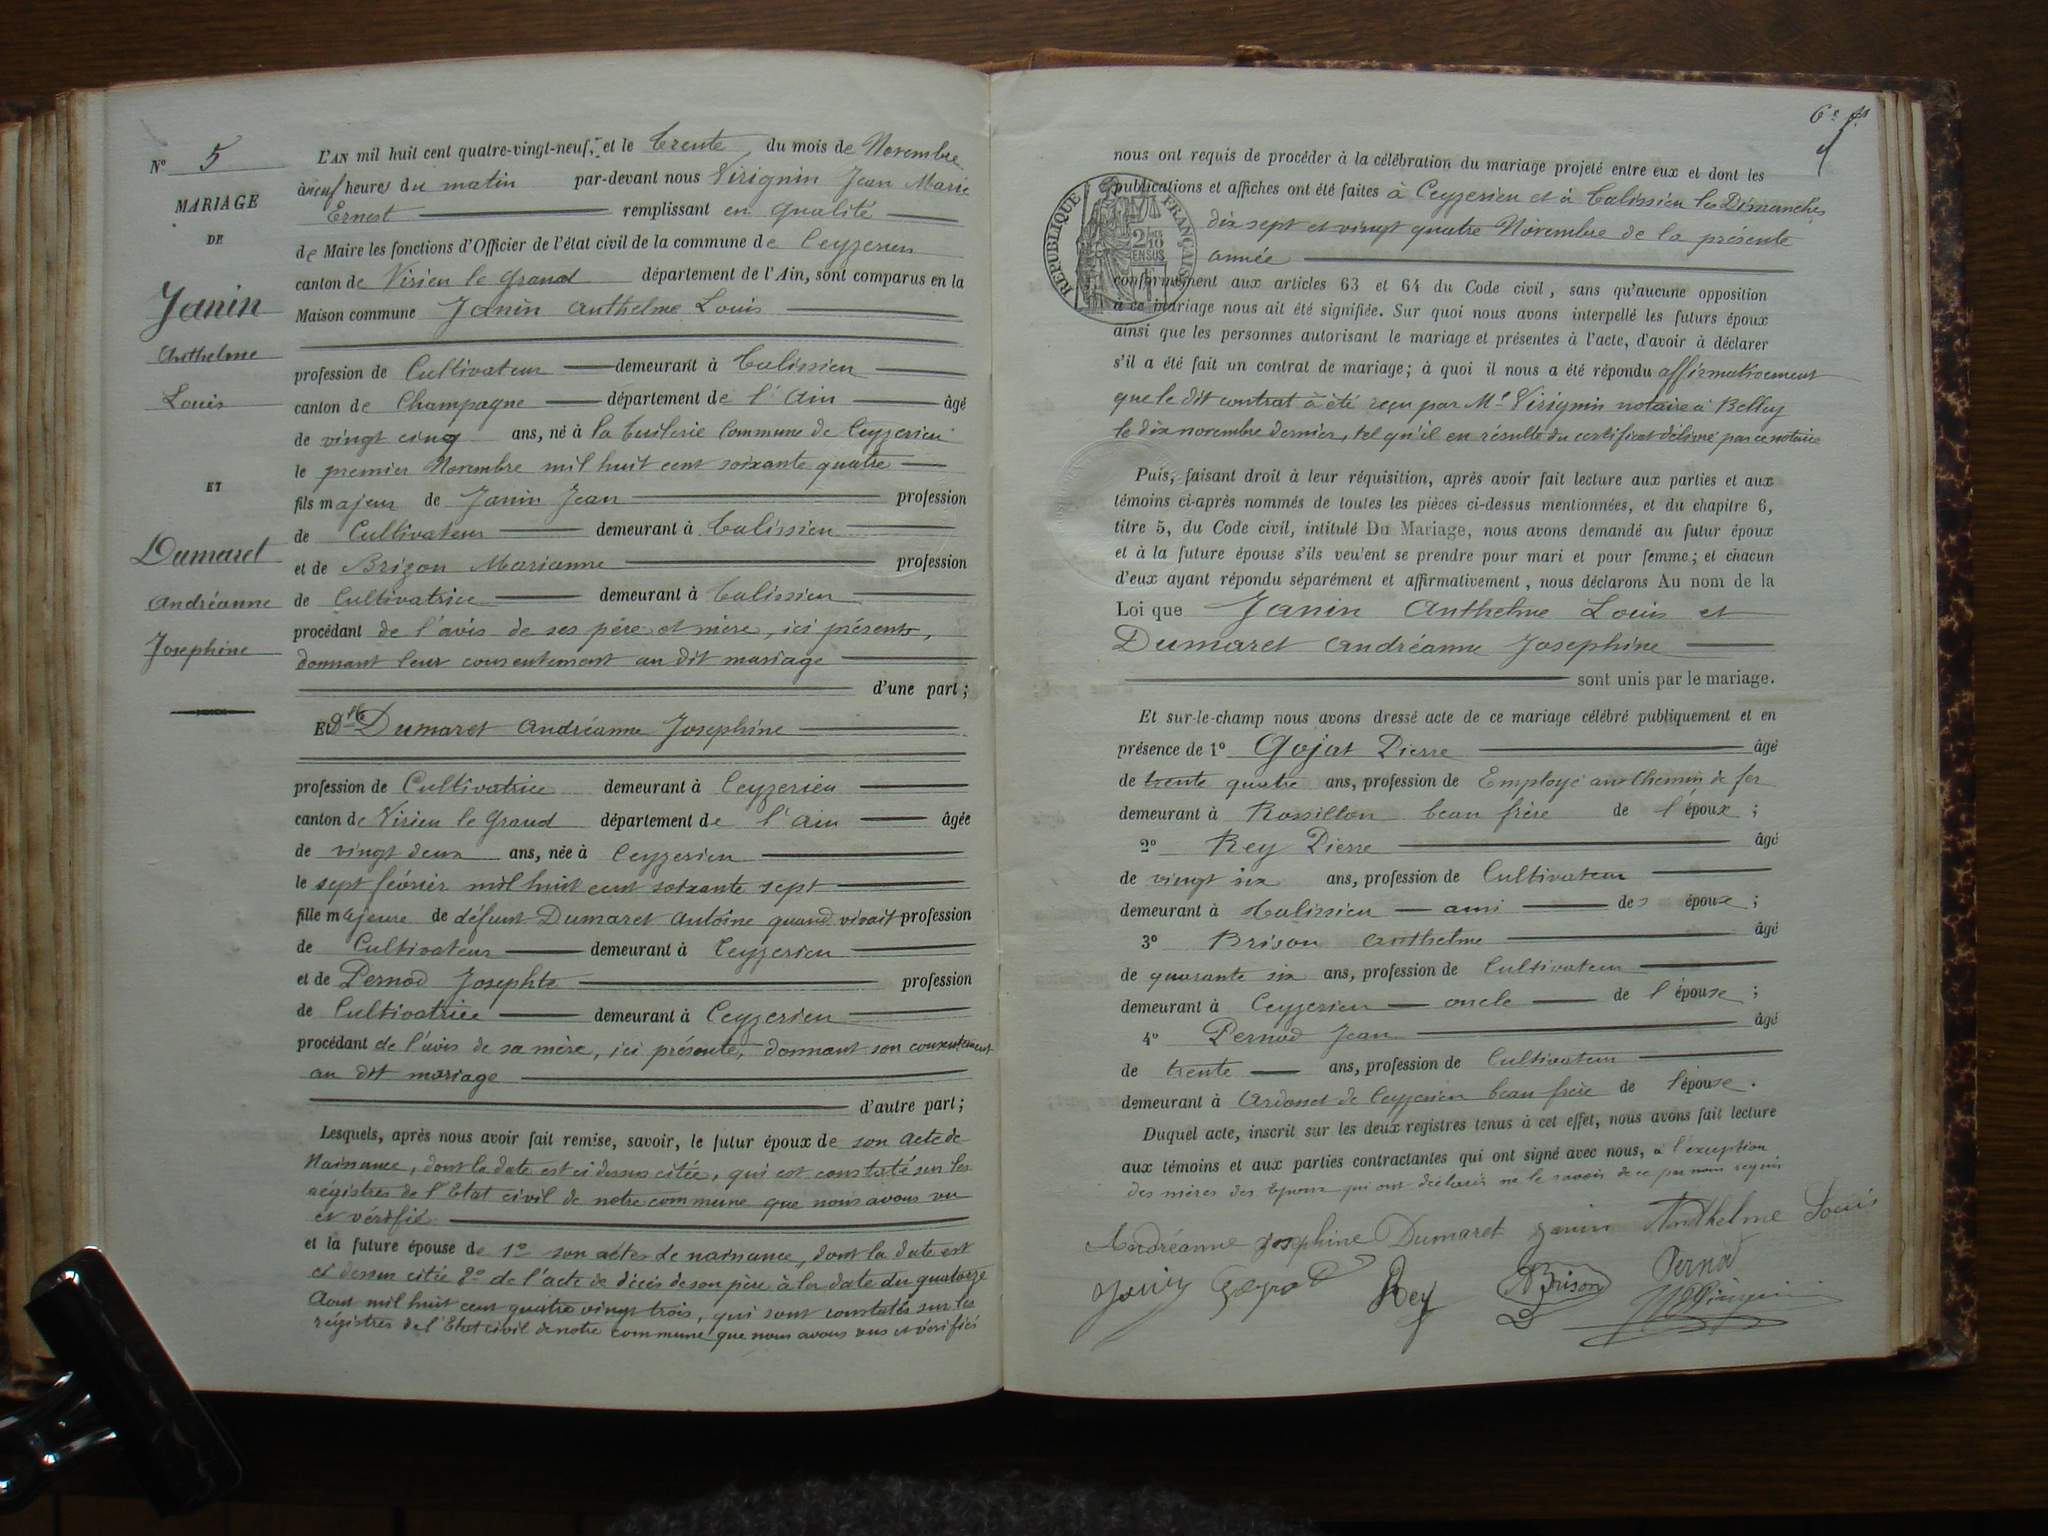 N° 5
MARIAGE
DE
Janin
Anthelme
Louis
ET
Dumaret
Andréanne
Josephine
L'AN mil huit cent quatre-vingt-neuf, et le trente du mois de Novembre
à neuf heures du matin par-devant nous Virignin Jean Marie
Ernest remplissant en qualité
de Maire les fonctions d'Officier de l'état civil de la commune de Ceyzerieu
canton de Virieu le Grand département de l'Ain, sont comparus en la
Maison commune Janin Anthelme Louis
profession de Cultivateur demeurant à Talissieu
canton de Champagne département de l'Ain âgé
de vingt cinq ans, né à la tuilerie Commune de Ceyzerieu
le premier Novembre mil huit cent soixante quatre
fils majeur de Janin Jean profession
de Cultivateur demeurant à Talissieu
et de Brizon Marianne profession
de Cultivatrice demeurant à Talissieu
procédant de l'avis de ses père et mère, ici présents,
donnant leur consentement au dit mariage
d'une part ;
Et Dlle Dumaret Andréanne Josephine
profession de Cultivatrice demeurant à Ceyzerieu
canton de Virieu le Grand département de l'Ain âgée
de vingt deux ans, née à Ceyzerieu
le sept février mil huit cent soixante sept
fille majeure de défunt Dumaret Antoine quand vivait profession
de Cultivateur demeurant à Ceyzerieu
et de Pernod Josephte profession
de Cultivatrice demeurant à Ceyzerieu
procédant de l'avis de sa mère, ici présente, donnant son consentement
au dit mariage
d'autre part ;
Lesquels, après nous avoir fait remise, savoir, le futur époux de son acte de
Naissance, dont la date est ci dessus citée, qui est constaté sur les
régistres de l'Etat civil de notre commune que nous avons vu
et vérifié
et la future épouse de 1° son actes de naissance, dont la date est
ci dessus citée 2° de l'acte de décès de son père à la date du quatorze
Aout mil huit cent quatre vingt trois, qui sont constatés sur les
régistres de l'Etat civil de notre commune que nous avons vus et vérifiés
6e
nous ont requis de procéder à la célébration du mariage projeté entre eux et dont les
publications et affiches ont été faites à Ceyzerieu et à Talissieu les Dimanches
dix sept et vingt quatre Novembre de la présente
année
RÉPUBLIQUE FRANÇAISE
2 10
EN SUS
conformément aux articles 63 et 64 du Code civil, sans qu'aucune opposition
à ce mariage nous ait été signifiée. Sur quoi nous avons interpellé les futurs époux
ainsi que les personnes autorisant le mariage et présentes à l'acte, d'avoir à déclarer
s'il a été fait un contrat de mariage ; à quoi il nous a été répondu affirmativement
que le dit contrat à été reçu par Me Virignin notaire à Belley
le dix novembre dernier, tel qu'il en résulte du certificat délivré par ce notaire
Puis, faisant droit à leur réquisition, après avoir fait lecture aux parties et aux
témoins ci-après nommés de toutes les pièces ci-dessus mentionnées, et du chapitre 6,
titre 5, du Code civil, intitulé Du Mariage, nous avons demandé au futur époux
et à la future épouse s'ils veulent se prendre pour mari et pour femme ; et chacun
d'eux ayant répondu séparément et affirmativement, nous déclarons Au nom de la
Loi que Janin Anthelme Louis et
Dumaret Andréanne Josephine
sont unis par le mariage.
Et sur-le-champ nous avons dressé acte de ce mariage célébré publiquement et en
présence de 1° Gojat Pierre âgé
de trente quatre ans, profession de Employé au Chemin de fer
demeurant à Rossillon beau frère de l'époux ;
2° Rey Pierre âgé
de vingt six ans, profession de Cultivateur
demeurant à Talissieu ami des époux ;
3° Brison Anthelme âgé
de quarante six ans, profession de Cultivateur
demeurant à Ceyzerieu oncle de l'épouse ;
4° Pernod Jean âgé
de trente ans, profession de Cultivateur
demeurant à Ardosset de Ceyzerieu beau frère de l'épouse.
Duquel acte, inscrit sur les deux registres tenus à cet effet, nous avons fait lecture
aux témoins et aux parties contractantes qui ont signé avec nous, à l'exception
des mères des époux qui ont déclaré ne le savoir de ce par nous requis
Andréanne Josephine Dumaret Janin Anthelme Louis
Janin Rey ABrison Pernod